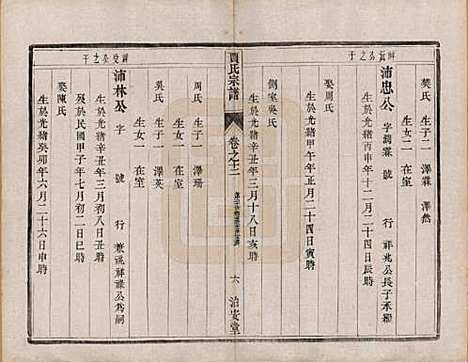 樊氏 生子二 澤霖 澤然
祥益公之子
浦忠公 字潤霖 號 行 祥兆公長子承繼
生於光緒丙申年十二月二十四日辰時
娶周氏
生於光緒甲午年正月二十四日寅時
側室吳氏
生於光緒辛丑年三月十八日亥時
賈氏宗譜
卷之十二
六 治安堂
周氏 生子一 澤瑞
生女二 在室
吳氏 生子一 澤英
生女一 在室
祥發公之子
浦林公 字 號 行 兼祧祥祿公為嗣
生於光緒辛丑年三月初二日寅時
歿於民國甲子年七月初一日巳時
娶陳氏
生於光緒癸卯年六月二十六日申時